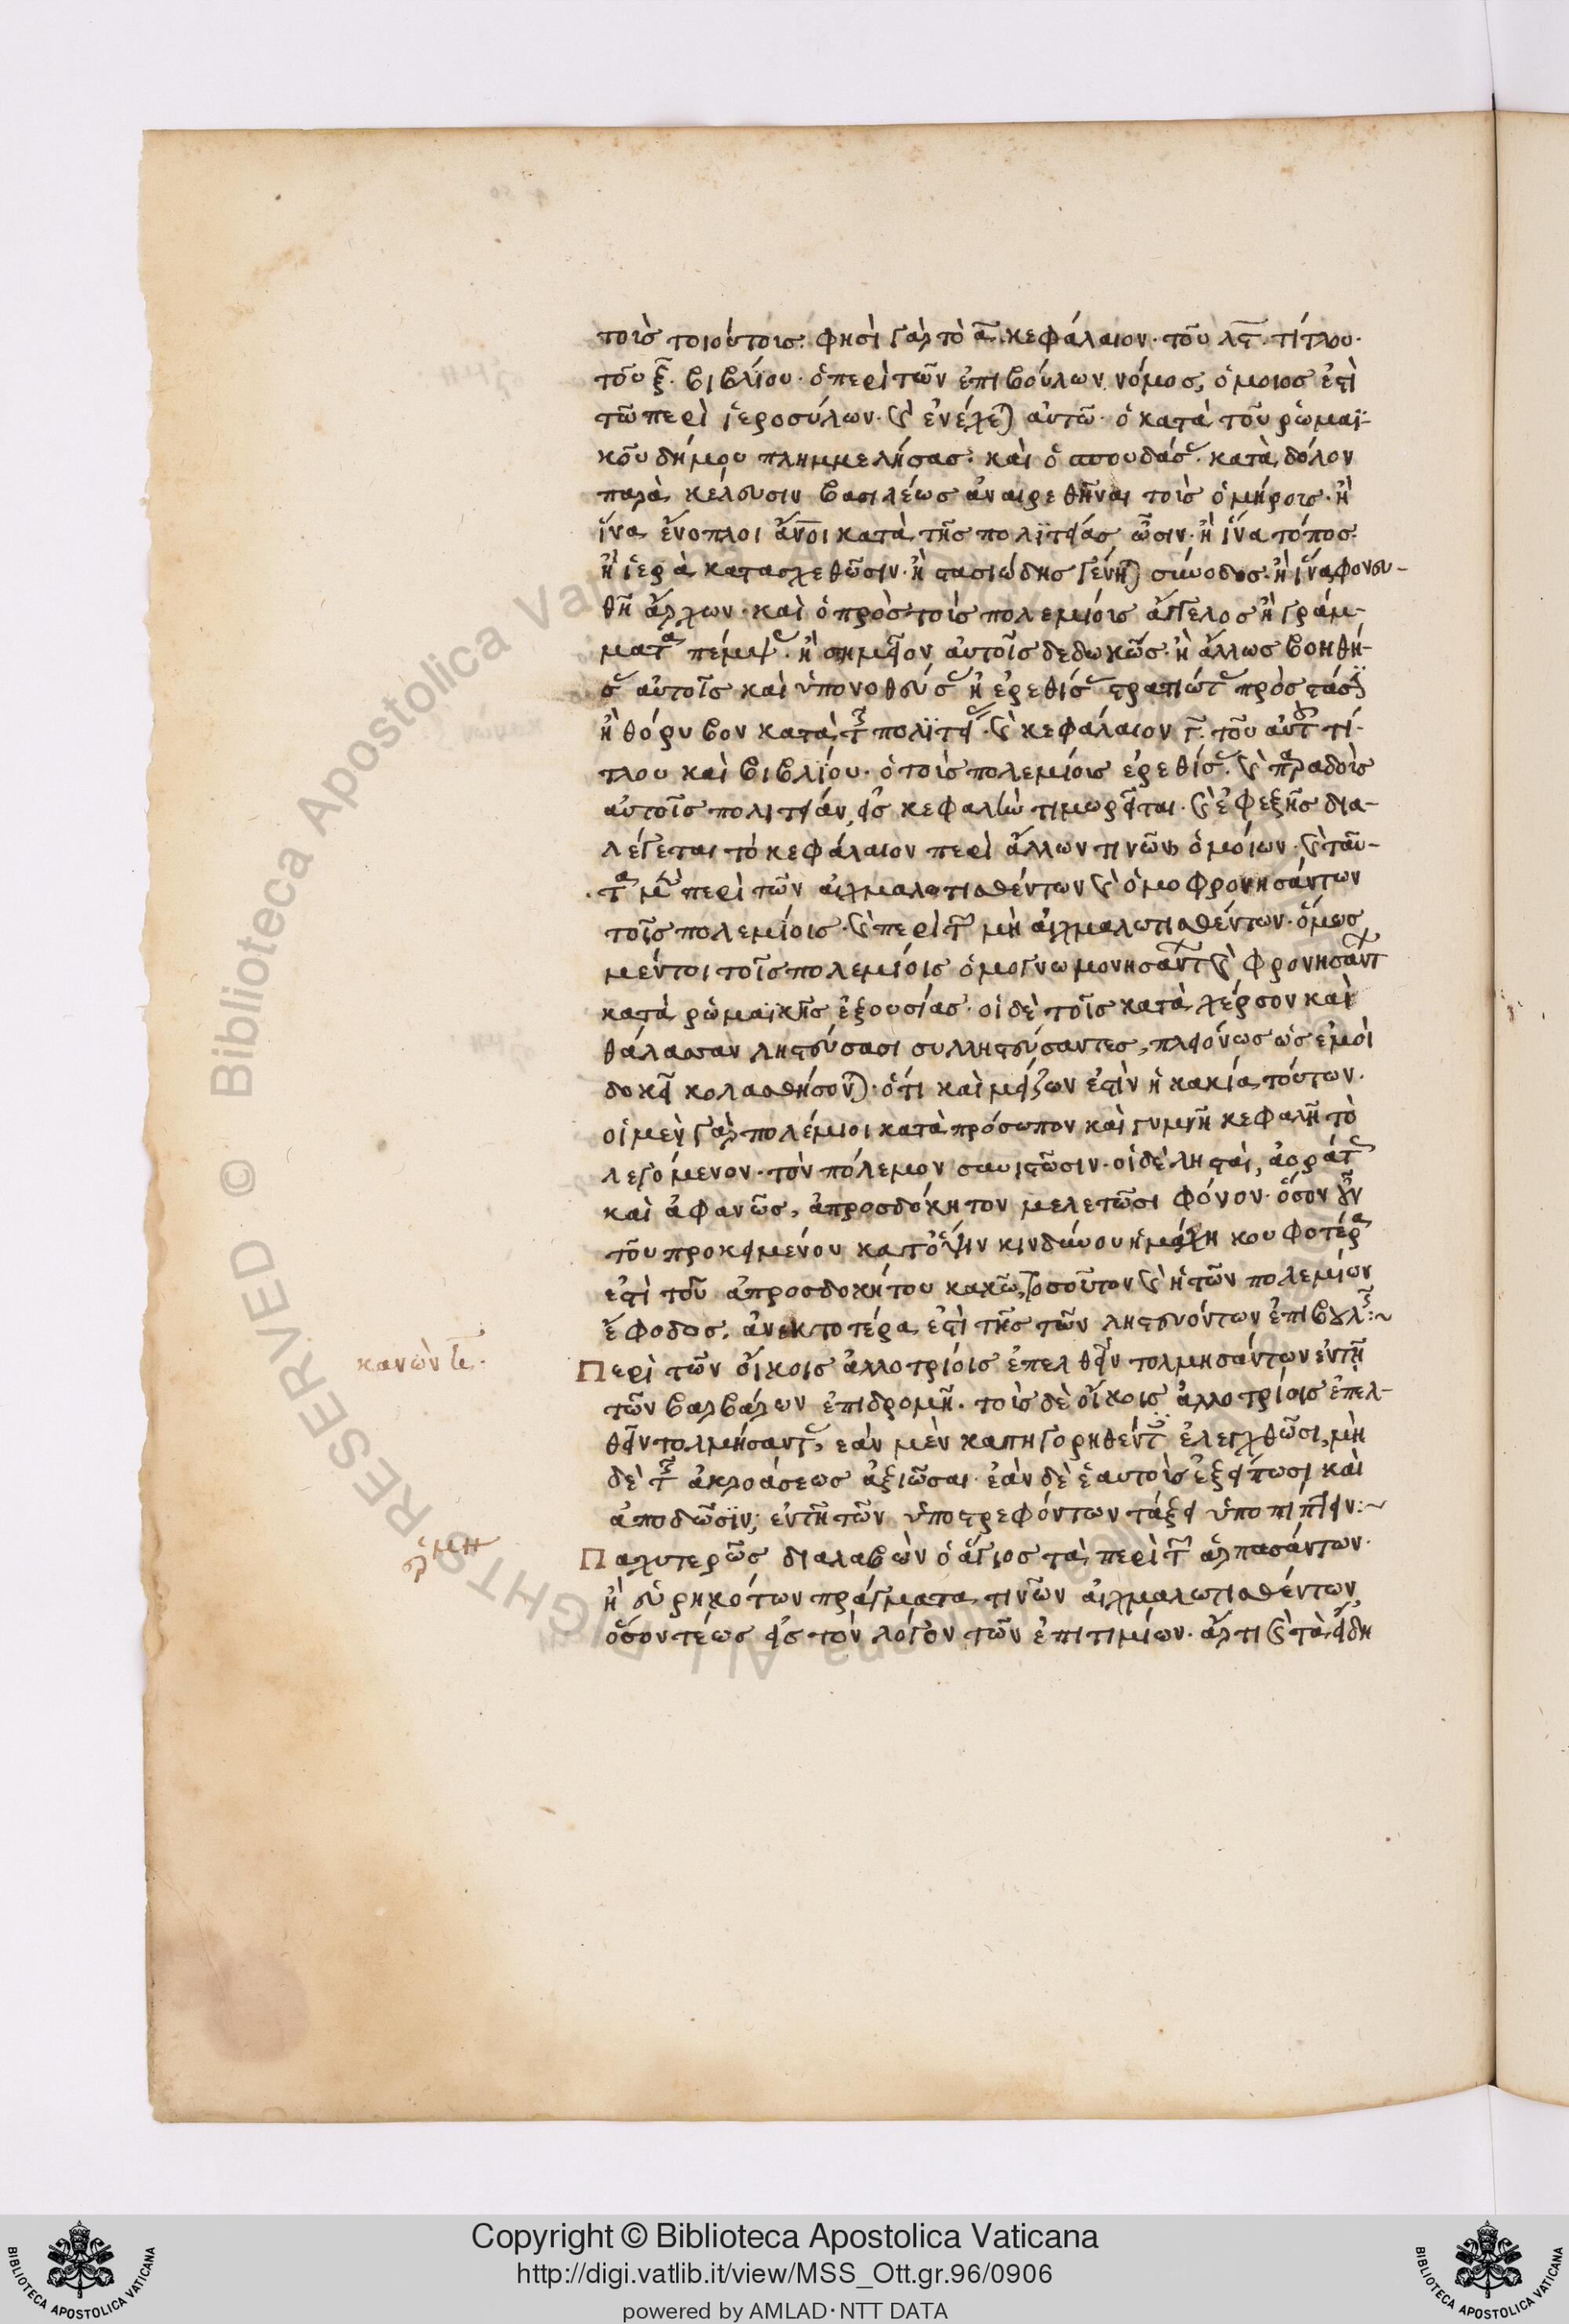 τοῖς τοιούτοις. φησὶ γὰρ τὸ α. κεφάλαιον. τοῦ λϛ. τίτλου.
τοῦ ξ. βιβλίου. ὁ περὶ τῶν ἐπιβούλων νόμος, ὅμοιος ἐστὶ
τῶ περὶ ἱεροσύλων. καὶ ἐνέχεται αὐτῶ. ὁ κατὰ τοῦ ῥωμαϊ-
κοῦ δήμου πλημμελήσας. καὶ ὁ σπουδάσας. κατὰ δόλον
παρὰ κέλευσιν βασιλέως ἀναιρεθῆναι τοὺς ὁμήρους. ἢ
ἵνα ἔνοπλοι ἄνοι κατὰ τῆς πολϊτείας ὦσιν. ἢ ἵνα τόπος
ἢ ἱερὰ κατασχεθῶσιν. ἢ στασιώδης γένηται σύνοδος. ἢ ἵνα φονευ-
θῆ ἄρχων. καὶ ὁ πρὸς τοὺς πολεμίους ἄγγελος ἢ γράμ-
ματα πέμψας. ἢ σημεῖον αὐτοῖς δεδωκὼς. ἢ ἄλλως βοηθή-
σας αὐτοῖς καὶ ὑπονοθεύσας ἢ ἐρεθίσας στρατιώτας πρὸς στάσιν
ἢ θόρυβον κατὰ τῆς πολϊτείας. καὶ κεφάλαιον γ. τοῦ αὐτοῦ τί-
τλου καὶ βιβλΐου. ὁ τοὺς πολεμίους ἐρεθίσας. καὶ παραδοὺς
αὐτοῖς πολιτείαν, εἰς κεφαλὴν τιμωρεῖται. καὶ ἐφεξῆς δια-
λέγεται τὸ κεφάλαιον περὶ ἄλλων τινῶν ὁμοίων. καὶ ταῦ-
τα μὲν περὶ τῶν αἰχμαλωτισθέντων καὶ ὁμοφρονησάντων
τοῖς πολεμίοις. καὶ περὶ τῶν μὴ αἰχμαλωτισθέντων. ὅμως
μέντοι τοῖς πολεμίοις ὁμογνωμονησάντων καὶ φρονησάντων
κατὰ ῥωμαϊκῆς ἐξουσίας. οἱ δὲ τοῖς κατὰ χέρσον καὶ
θάλασσαν ληστεύσασι συλληστεύσαντες, πλειόνως ὡς ἐμοὶ
δοκεῖ κολασθήσονται. ὅτι καὶ μείζων ἐστὶν ἡ κακία τούτων.
οἱ μὲν γὰρ πολέμιοι κατὰ πρόσωπον καὶ γυμνῆ κεφαλῆ τὸ
λεγόμενον. τὸν πόλεμον συνιστῶσιν. οἱ δὲ λησταὶ, ἀοράτως
καὶ ἀφανῶς, ἀπροσδόκητον μελετῶσι φόνον. ὅσον οὖν
τοῦ προκειμένου κατ' ὄψιν κινδύνου ἡ μάχη κουφοτέρα
ἐστὶ τοῦ ἀπροσδοκήτου κακοῦ, τοσοῦτον καὶ ἡ τῶν πολεμίων
ἔφοδος, ἀνεκτοτέρα ἐστὶ τῆς τῶν ληστευόντων ἐπιβουλῆς:~
κανὼν ιε.
Περὶ τῶν οἴκοις ἀλλοτρίοις ἐπελθεῖν τολμησάντων ἐν τῆ
τῶν βαρβάρων ἐπιδρομῆ. τοὺς δὲ οἴκοις ἀλλοτρίοις ἐπελ-
θεῖν τολμήσαντας, ἐὰν μὲν κατηγορηθέντες ἐλεγχθῶσι, μὴ
δὲ τῆς ἀκροάσεως ἀξιῶσαι. ἐὰν δὲ ἑαυτοὺς ἐξείπωσι καὶ
ἀποδῶσϊν, ἐν τῆ τῶν ὑποστρεφόντων τάξει ὑποπίπτειν:~
ἑρμη
Πλατυτερῶς διαλαβὼν ὁ ἅγιος τὰ περὶ τῶν ἁρπασάντων.
ἢ εὑρηκότων πράγματα τινῶν αἰχμαλωτισθέντων,
ὅσον τέως εἰς τὸν λόγον τῶν ἐπιτιμίων. ἄρτι καὶ τὰ εἴδη